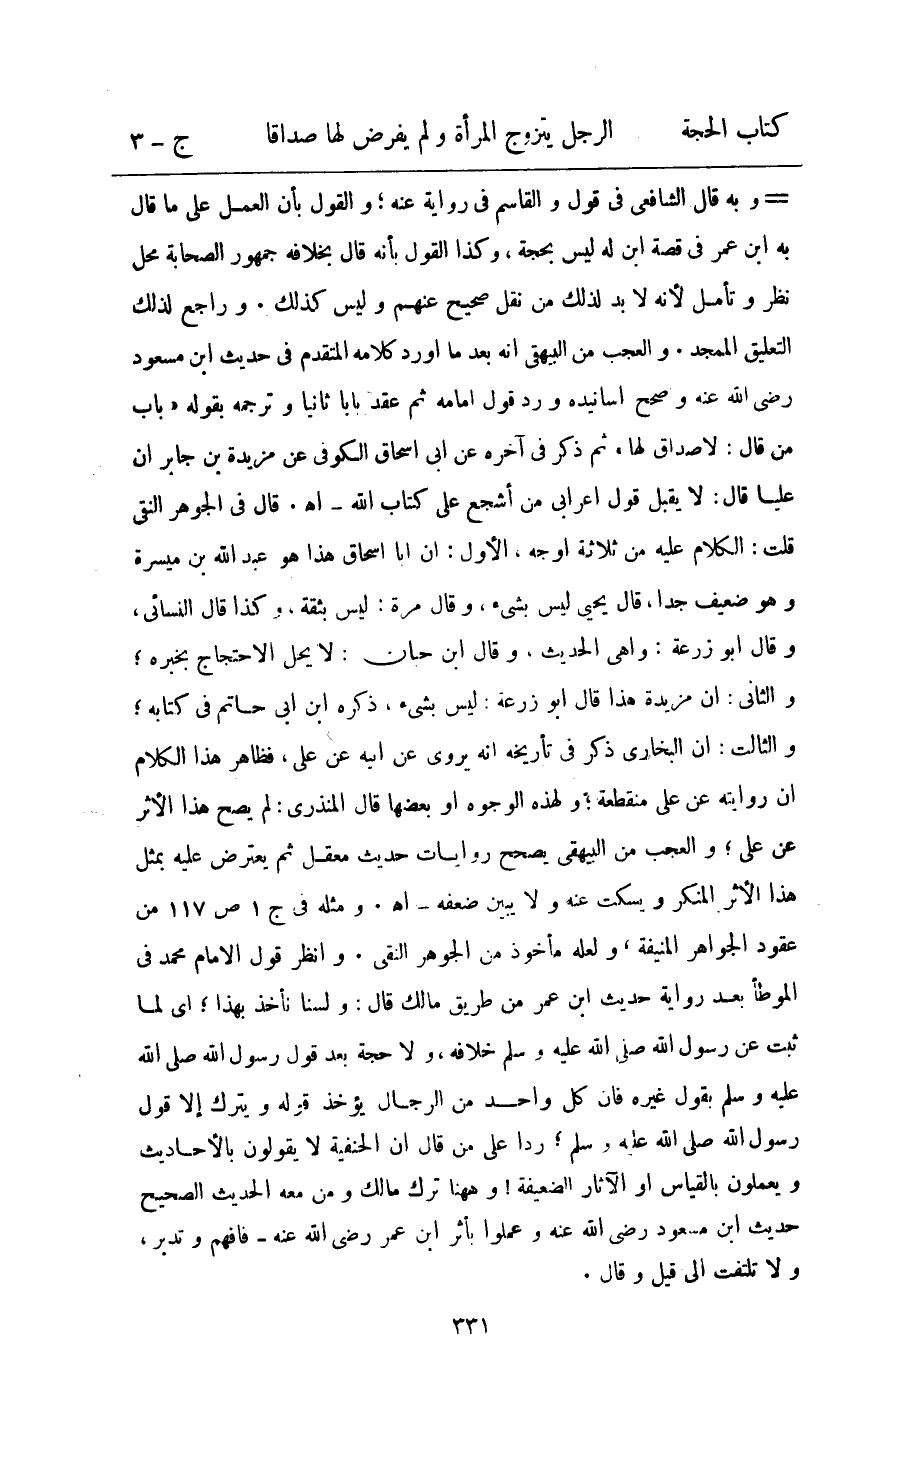 كتاب الحجة الرجل يتزوج المرأة و لم يفرض لها صداقا ج ـ ٣
= و به قال الشافعى فى قول و القاسم فى رواية عنه ؛ و القول بأن العمل على ما قال
به ابن عمر فى قصة ابن له ليس بحجة ، وكذا القول بأنه قال بخلافه جمهور الصحابة محل
نظر و تأمل لأنه لا بد لذلك من نقل صحيح عنهم و ليس كذلك . و راجع لذلك
التعليق الممجد . و العجب من البيهقى انه بعد ما اورد كلامه المتقدم فى حديث ابن مسعود
رضى الله عنه و صحح اسانيده و رد قول امامه ثم عقد بابا ثانيا و ترجمه بقوله « باب
من قال : لاصداق لها » ثم ذكر فى آخره عن ابى اسحاق الكوفى عن مزيدة بن جابر ان
عليا قال : لا يقبل قول اعرابى من أشجع على كتاب الله ـ اه . قال فى الجوهر النقى
قلت : الكلام عليه من ثلاثة اوجه ، الأول : ان ابا اسحاق هذا هو عبد الله بن ميسرة
و هو ضعيف جدا ، قال يحيى ليس بشىء ، و قال مرة : ليس بثقة ، و كذا قال النسائى ،
و قال ابو زرعة : واهى الحديث ، و قال ابن حبان : لا يحل الاحتجاج بخبره ؛
و الثانى : ان مزيدة هذا قال ابو زرعة : ليس بشىء ، ذكره ابن ابى حاتم فى كتابه ؛
و الثالث : ان البخارى ذكر فى تأريخه انه يروى عن ابيه عن على ، فظاهر هذا الكلام
ان روايته عن على منقطعة ؛ و لهذه الوجوه او بعضها قال المنذرى : لم يصح هذا الأثر
عن على ؛ و العجب من البيهقى يصحح روايات حديث معقل ثم يعترض عليه بمثل
هذا الأثر المنكر و يسكت عنه و لا يبين ضعفه ـ اه . و مثله فى ج ١ ص ١١٧ من
عقود الجواهر المنيفة ، و لعله مأخوذ من الجوهر النقى . و انظر قول الامام محمد فى
الموطأ بعد رواية حديث ابن عمر من طريق مالك قال : و لسنا نأخذ بهذا ؛ اى لما
ثبت عن رسول الله صلى الله عليه و سلم خلافه ، و لا حجة بعد قول رسول الله صلى الله
عليه و سلم بقول غيره فان كل واحد من الرجال يؤخذ قوله و يترك إلا قول
رسول الله صلى الله عليه و سلم ؛ ردا على من قال ان الحنفية لا يقولون بالأحاديث
و يعملون بالقياس او الآثار الضعيفة ! و ههنا ترك مالك و من معه الحديث الصحيح
حديث ابن مسعود رضى الله عنه و عملوا بأثر ابن عمر رضى الله عنه ـ فافهم و تدبر ،
و لا تلتفت الى قيل و قال .
٣٣١